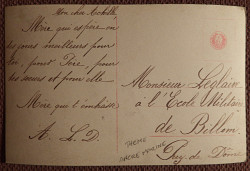 Mon cher Achille
Mère qui espère en
les jours meilleurs pour
toi, pour Père, pour
les sœurs et pour elle.
Mère qui t'embrasse
A. L. D.
Monsieur Leclaire
à l'Ecole Militaire
de Billom
Puy de Dôme
THEME